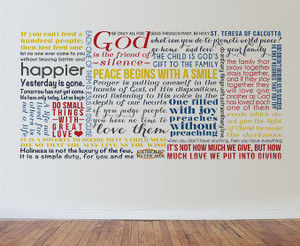 If you can't feed a
hundred people,
then just feed one
let no one ever come to you
without leaving better and
happier
Yesterday is gone.
Tomorrow has not yet come.
We have only today. Let us begin.
DO SMALL
THINGS
WITH
GREAT
LOVE
BE ONLY ALL FOR JESUS THROUGH MARY, BE HOLY
God
is the friend of
-silence-
ST. TERESA OF CALCUTTA
what can you do to promote world peace?
go home and love your family
THE CHILD IS GOD'S
GIFT TO THE FAMILY
PEACE BEGINS WITH A SMILE
Prayer is putting oneself in the
hands of God, at His disposition,
and listening to His voice in the
depth of our hearts
if you judge people,
you have no time to
love them
One filled
with joy
preaches
without
preaching
the family that
prays together
stays together,
and if they stay
together they
will love one
another as God
has loved each
one of them
words which do
not give the light
of Christ increase
the darkness
when you don't have anything, then you have everything
Holiness is not the luxury of the few,
it is a simple duty, for you and me
IT'S NOT HOW MUCH WE GIVE, BUT HOW
MUCH LOVE WE PUT INTO GIVING